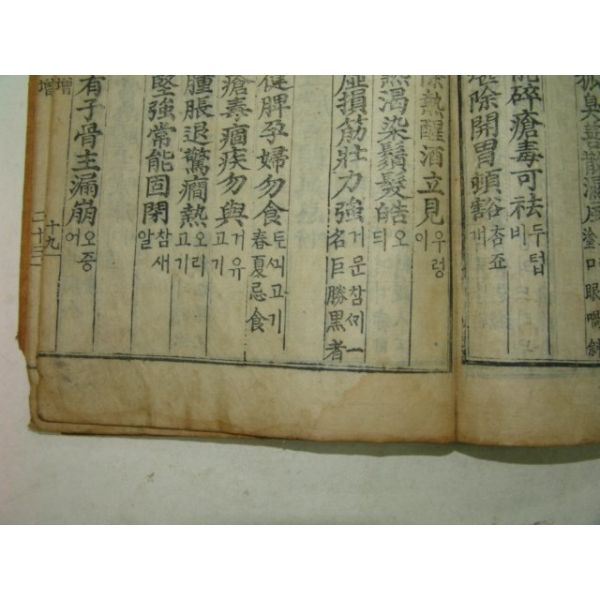 能碎瘡毒可祛 두텁비
除開胃頭
除熱醒酒立見 우렁이
熱渴染鬚髮皓 오듸
虛損筋壯力強 거문참ᄭᅢ一名巨勝黑者
健脾孕婦勿食 토ᄭᅵ고기春夏忌食
瘡毒痼疾勿與 거유고기
腫脹退驚癇熱 오리고기
堅強常能固閉 참새알
有子骨主漏崩 오중어
增 十九
增